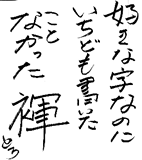 好きな字なのに
いちども書いた
こと
なかった
褌